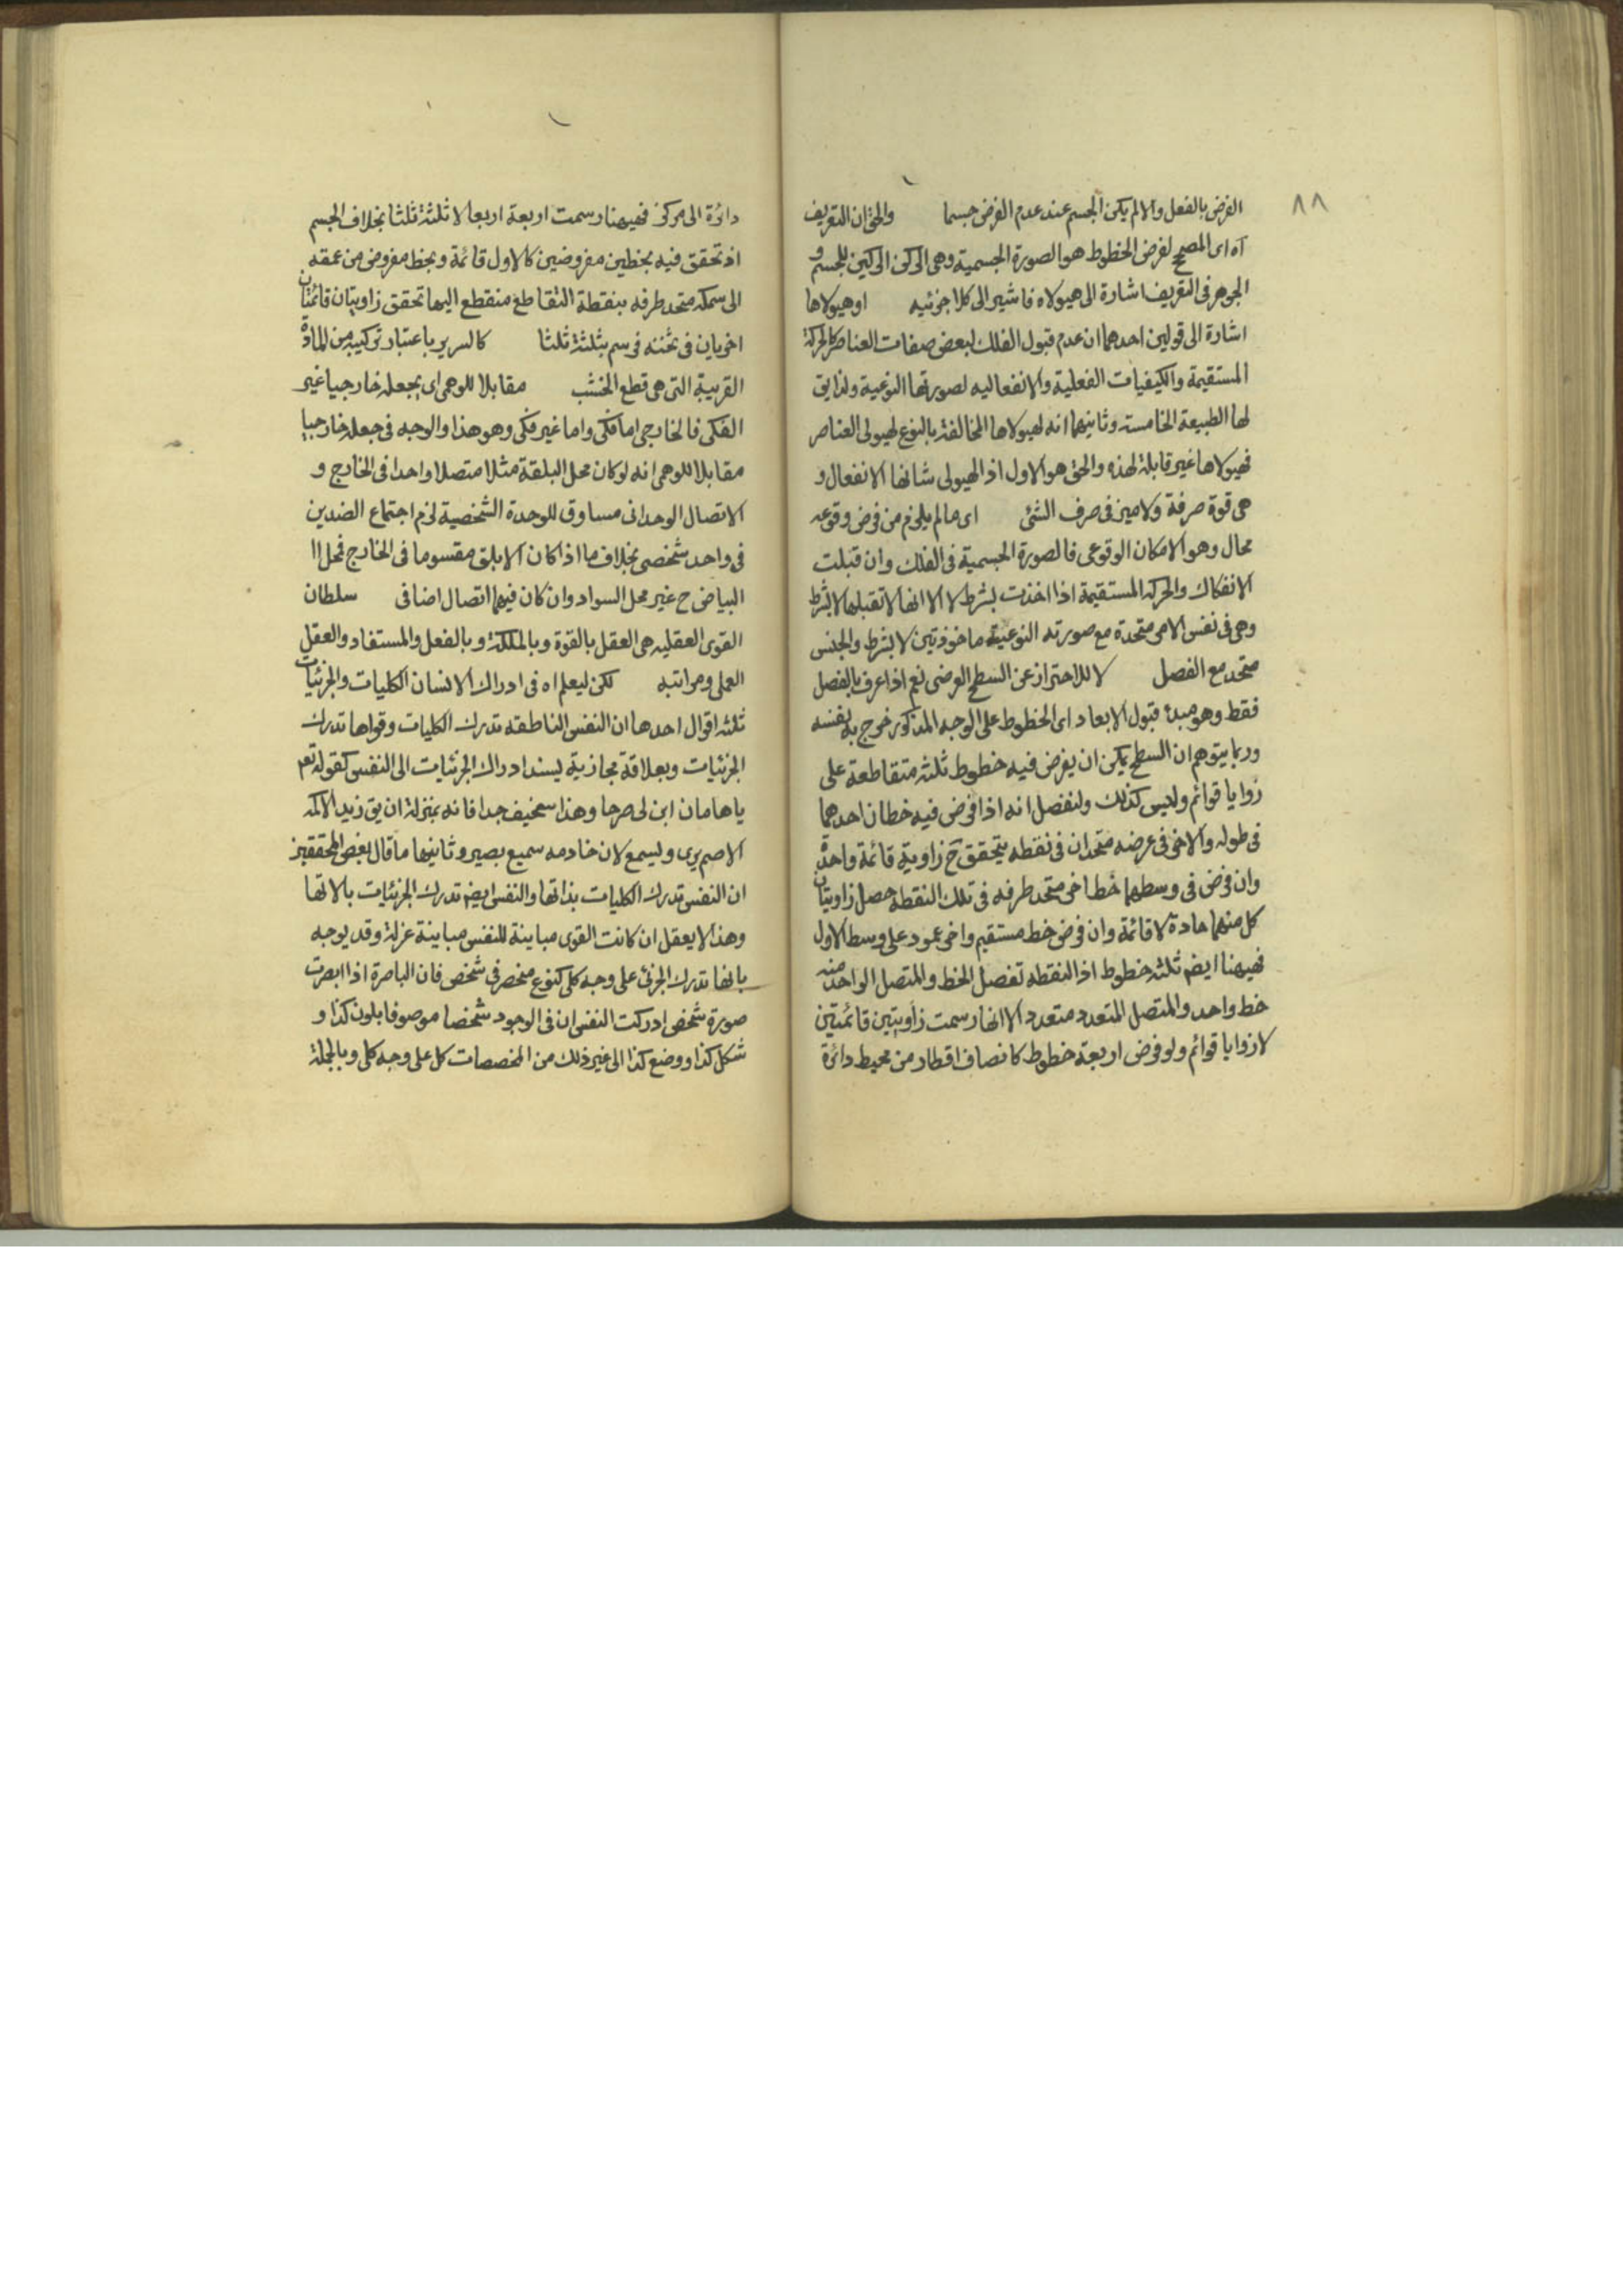 ٨٨
الفرض بالفعل والا لم يكن الجسم عند عدم الفرض جسما والحق ان التعريف
آه اى المصحح لفرض الخطوط هو الصورة الجسمية وهى الركن الركين للجسم و
الجوهر فى التعريف اشارة الى هيولاه فاشير الى كلا جزئيه او هيولاها
اشارة الى قولين احدهما ان عدم قبول الفلك لبعض صفات العناصر كالحركة
المستقيمة والكيفيات الفعلية والانفعاليه لصورتها النوعية ولذا يق
لها الطبيعة الخامسة وثانيهما انه لهيولاها المخالفة بالنوع لهيولى العناصر
فهيولاها غير قابلة لهذه والحق هو الاول اذ الهيولى شانها الانفعال و
هى قوة صرفة ولا ميز فى صرف الشئ اى ما لم يلزم من فرض وقوعه
محال وهو الامكان الوقوعى فالصورة الجسمية فى الفلك وان قبلت
الانفكاك والحركة المستقيمة اذا اخذت بشرط لا الا انها لا تقبلها لا بشرط
وهى فى نفس الامر متحدة مع صورته النوعية ماخوذتين لا بشرط والجنس
متحد مع الفصل لا للاحتراز عن السطح العرضى نعم اذا عرف بالفصل
فقط وهو مبدء قبول الابعاد اى الخطوط على الوجه المذكور خرج به بنفسه
وربما يتوهم ان السطح يمكن ان يفرض فيه خطوط ثلثة متقاطعة على
زوايا قوائم وليس كذلك ولنفصل انه اذا فرض فيه خطان احدهما
فى طوله والاخر فى عرضه متحدان فى نقطه يتحقق ح زاوية قائمة واحدة
وان فرض فى وسطهما خط اخر متحد طرفه فى تلك النقطه حصل زاويتان
كل منهما حادة لا قائمة وان فرض خط مستقيم واخر عمود على وسط الاول
فهيهنا ايضم ثلثه خطوط اذ النقطه تفصل الخط والمتصل الواحد منه
خط واحد والمتصل المتعدد متعدد الا انها رسمت زاويتين قائمتين
لا زوايا قوائم ولو فرض اربعة خطوط كانصاف اقطار من محيط دائرة
دائرة الى مركز فهيهنا رسمت اربعة اربعا لا ثلثة ثلثا بخلاف الجسم
اذ تحقق فيه بخطين مفروضين كالاول قائمة وبخط مفروض من عمقه
الى سمكه متحد طرفه بنقطة التقاطع منقطع اليها تحقق زاويتان قائمتان
اخريان فى ثخنه فرسم بثلثة ثلثا كالسرير باعتبار تركيبه من المادة
القريبة التى هى قطع الخشب مقابلا للوهمى اى بجعله خارجيا غير
الفكى فالخارجى اما فكى واما غير فكى وهو هذا والوجه فى جعله خارجيا
مقابلا للوهمى انه لو كان محل البلقة مثلا متصلا واحدا فى الخارج و
الاتصال الوحدانى مساوق للوحدة الشخصية لزم اجتماع الضدين
فى واحد شخصى بخلاف ما اذا كان الابلق مقسوما فى الخارج فمحل ا
البياض ح غير محل السواد وان كان فيهما اتصال اضافى سلطان
القوى العقليه هى العقل بالقوة وبالملكة وبالفعل والمستفاد والعقل
العملى ومراتبه لكن ليعلم اه فى ادراك الانسان الكليات والجزئيات
ثلثه اقوال احدها ان النفس الناطقه تدرك الكليات وقواها تدرك
الجزئيات وبعلاقة مجازية يسند ادراك الجزئيات الى النفس كقوله تعم
يا هامان ابن لى صرحا وهذا سخيف جدا فانه بمنزلة ان يق زيد الاكمه
الاصم يرى ويسمع لان خادمه سميع بصير وثانيها ما قال بعض المحققين
ان النفس تدرك الكليات بذاتها والنفس ايضم تدرك الجزئيات بالاتها
وهذا لا يعقل ان كانت القوى مباينة للنفس مباينة عزلة وقد يوجه
بانها تدرك الجزئى على وجه كلى كنوع منحصر فى شخص فان الباصرة اذا ابصرت
صورة شخص ادركت النفس ان فى الوجود شخصا موصوفا بلون كذا و
شكل كذا ووضع كذا الى غير ذلك من المخصصات كل على وجه كلى وبالجملة